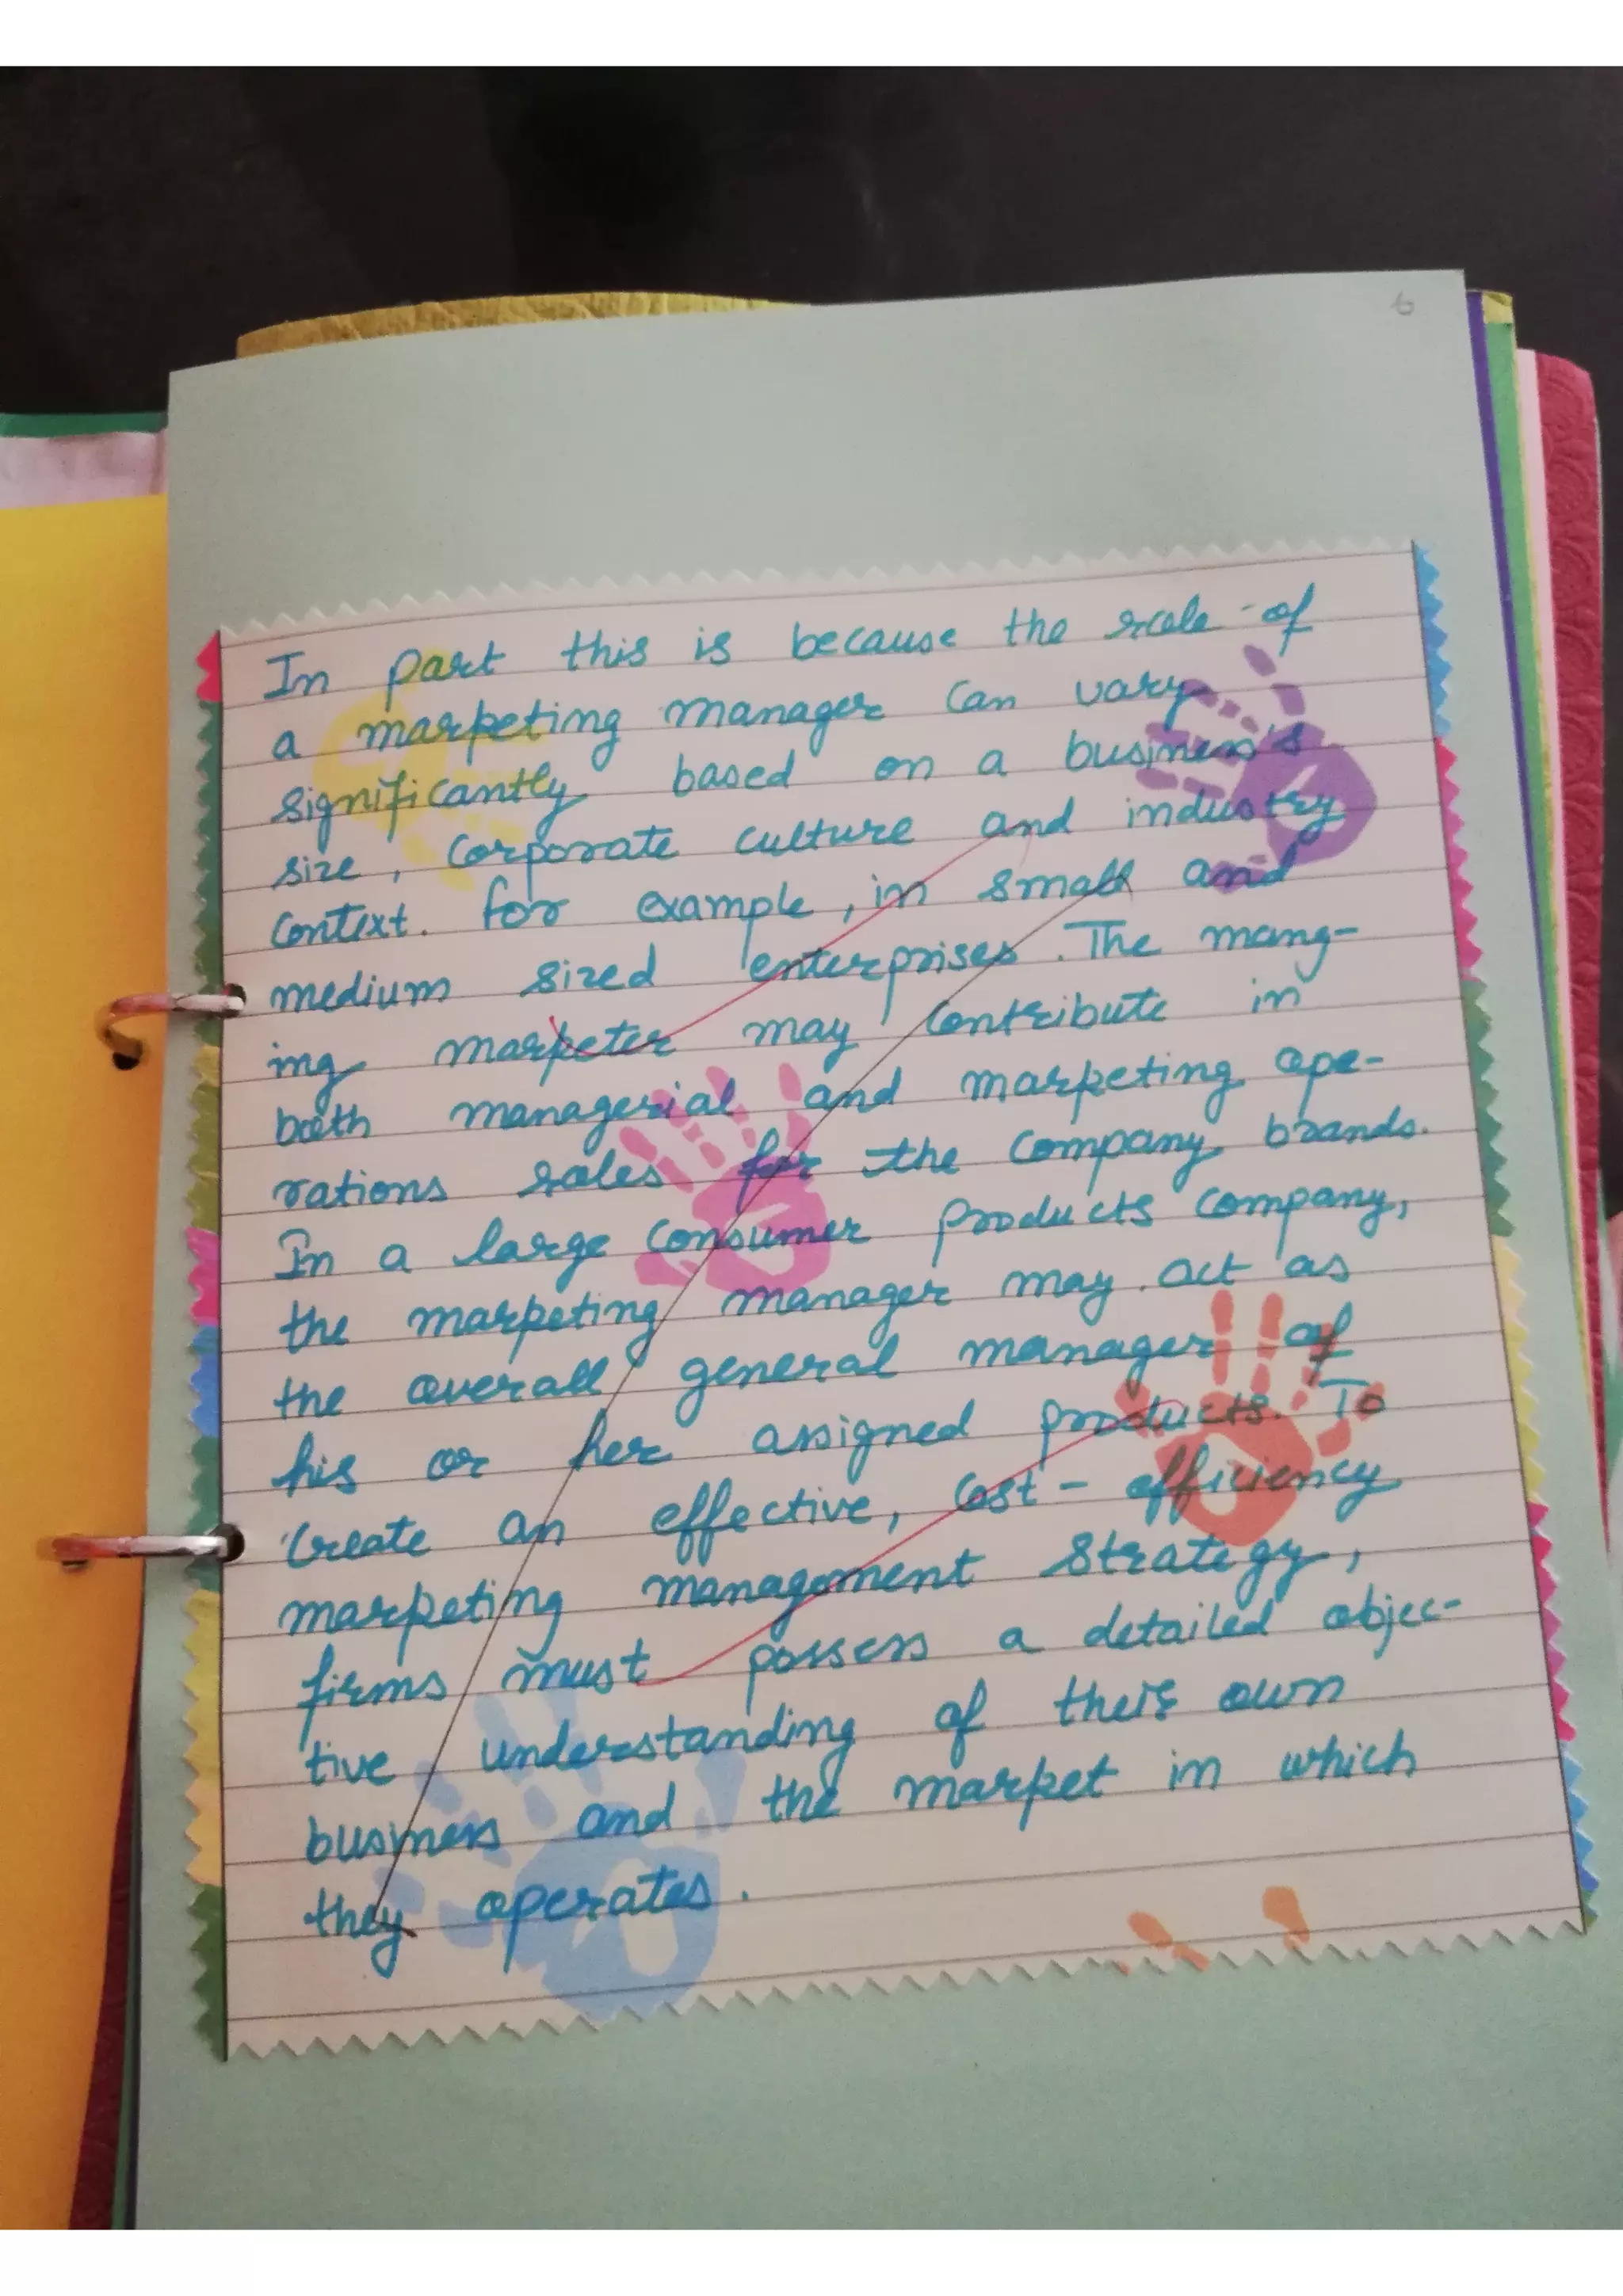 6
In part this is because the role of
a marketing manager can vary
significantly based on a business's
size, corporate culture and industry
context. for example, in small and
medium sized enterprises. The mang-
ing marketer may contribute in
both managerial and marketing ope-
rations roles for the company brands.
In a large consumer products company,
the marketing manager may act as
the overall general manager of
his or her assigned products. To
create an effective, cost - efficiency
marketing management strategy,
firms must possess a detailed objec-
tive understanding of their own
business and the market in which
they operates.